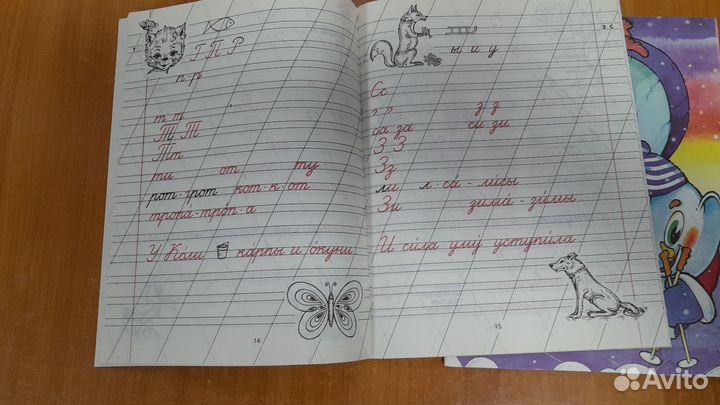 т
Г П Р
п-р
т т
Т Т
Тт
ти от ту
рот-грот кот-к·от
тропа-троп·а
У Коли карпы и окуни
14
з с
ы и у
Сс
з з
са за си зи
З З
Зз
ли л·са-лисы
Зи зима-зимы
И сила уму уступила
15
Avito